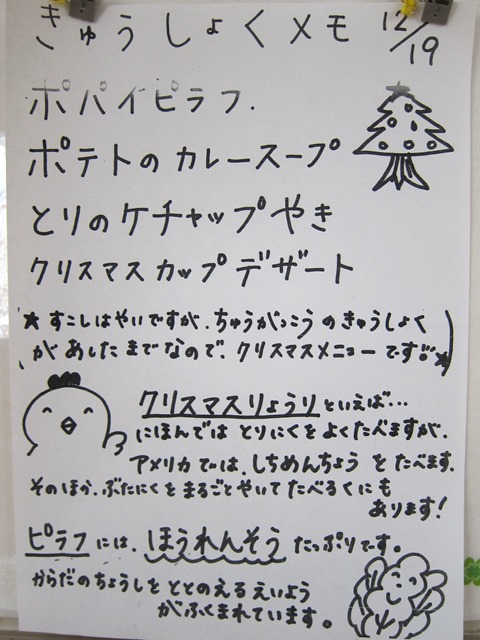 きゅうしょくメモ 12/19
ポパイピラフ.
ポテトのカレースープ
とりのケチャップやき
クリスマスカップデザート
★すこしはやいですが、ちゅうがっこうのきゅうしょく
があしたまでなので、クリスマスメニューです。★
クリスマスりょうりといえば…
にほんではとりにくをよくたべますが、
アメリカでは、しちめんちょうをたべます。
そのほか、ぶたにくをまるごとやいてたべるくにも
あります!
ピラフには、ほうれんそうたっぷりです。
からだのちょうしをととのえるえいよう
がふくまれています。